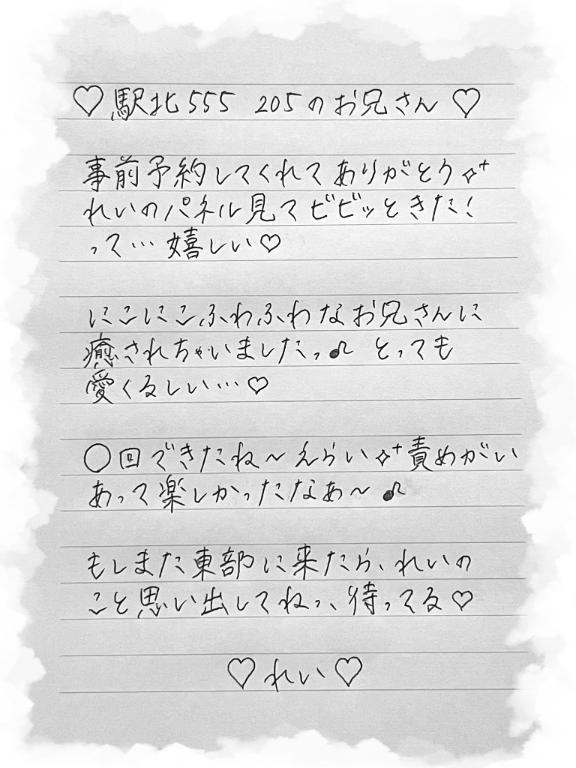 ♡駅北555 205のお兄さん♡
事前予約してくれてありがとう✧⁺
れいのパネル見てビビッときた！
って…嬉しい♡
にこにこふわふわなお兄さんに
癒されちゃいましたっ♫ とっても
愛くるしい…♡
〇回できたね～えらい✧⁺責めがい
あって楽しかったなあ～♫
もしまた東部に来たら、れいの
こと思い出してねっ、待ってる♡
♡れい♡